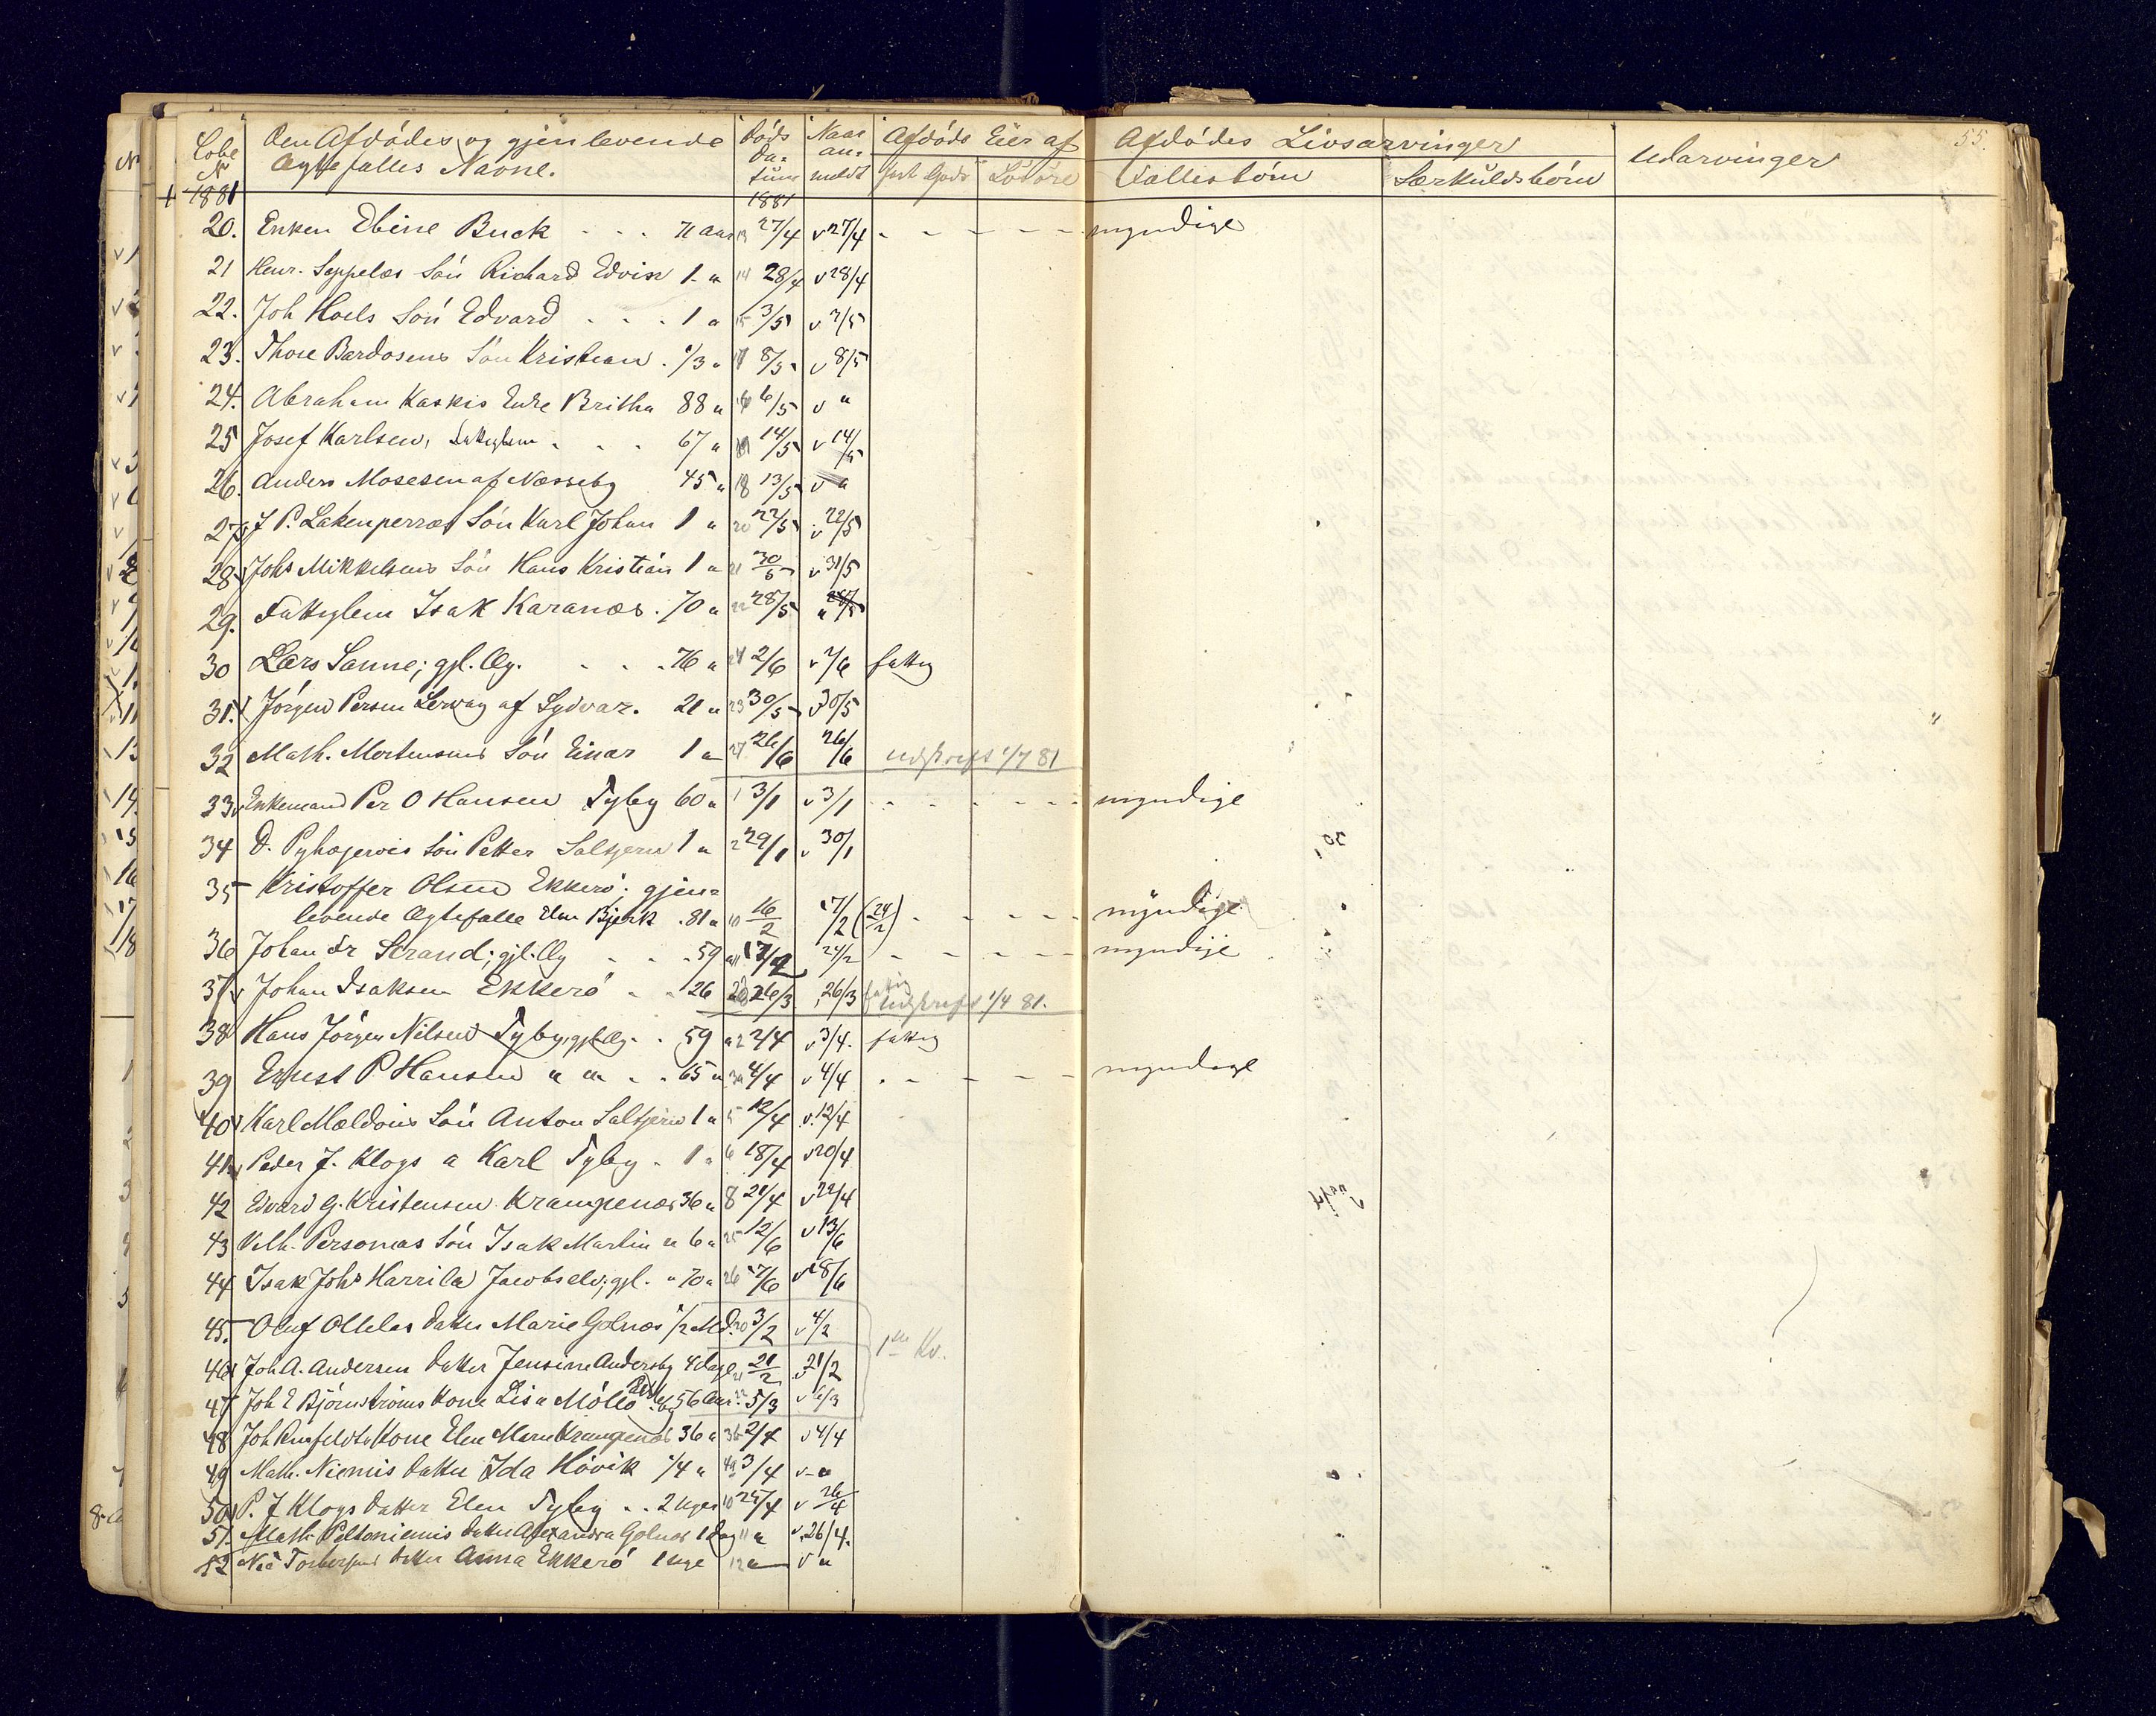 Löbe № Den Afdödes og gjenlevende Ægtefælles Navne. Döds Da- tum Naar an- meldt Afdöde Eier af Jord Gods Lösöre Afdödes Livsarvinger Fællesbörn Særkuldsbörn Udarvinger 55.
1881 1881
20. Enken Ebine Buck - - - 71 aar 13 27/4 v 27/4 - - - - - myndige
21 Henr. Seppelæs Sön Richard Edvin 1 " 14 28/4 v 28/4
22. Joh Hoels Sön Edvard . . . 1 " 15 3/5 v 3/5
23. Thore Bardosens Sön Kristian . 1/3 " 17 8/5 v 8/5
24. Abraham Kaskis Enke Britha 88 " 16 6/5 v "
25 Josef Karlsen, Fattiglem . . . 67 " 14/5 v 14/5
26. Anders Mosesen af Næsseby 45 " 18 13/5 v "
27 J P. Lakenperræs Sön Karl Johan 1 " 20 22/5 v 22/5
28 Johs Mikkelsens Sön Hans Kristian 1 " 21 30/5 v 31/5
29. Fattiglem Isak Karanæs . 70 " 22 28/5 "
30 Lars Sanne; gjl. Æg. . . . 76 " 24 2/6 v 7/6 fattig
31. Jörgen Persen Lervaag af Sydvar. 21 " 23 30/5 v 30/5
32 Math. Mortensens Sön Einar 1 " 27 26/6 26/6 udskrift 1/7 81
33 Enkemand Per O Hansen Tyby 60 " 1 3/1 v 3/1 - - - - - myndige
34 D. Pyhajervis Sön Petter Saltjern 1 " 2 29/1 v 30/1
35 Kristoffer Olsen Ekkerö; gjen-
levende Ægtefælle Elen Bjerk . 81 " 10 16/2 17/2 (24/2) - - - - myndige
36 Johan Fr Strand; gjl. Æg - - - 59 " 11 24/2 - - - - myndige
37 Johan Isaksen Ekkerö - - 26 26/3 26/3 fattig udskrift 1/4 81.
38 Hans Jörgen Nilsen Tyby; gjl Æg. . 59 " 2 2/4 v 3/4. fattig
39 Ernst P Hansen " " - . 65 " 4/4 v 4/4 . - - - - myndige
40 Karl Mældois Sön Anton Saltjern 1 " 5 12/4 v 12/4
41 Peder J. Klogs " Karl Tyby . 1 " 6 18/4 v 20/4
42 Edvard G. Kristensen Krampenæs 36 " 8 21/4 v 22/4
43 Vilh. Personias Sön Isak Martin " 6 " 25 12/6 v 13/6
44 Isak Johs Harrila Jacobselv; gjl. " 70 " 26 17/6 v 18/6
45. Oluf Ollilas datter Marie Golnæs 1/2 Md. 20 3/2 v 4/2 1ste Kv.
46 Joh A. Andersen datter Jensine Andersby 4 dage 21/2 21/2
47 Joh E Björnströms kone Lisa 56 Aar. 5/3 v 6/3
48 Joh Kone Elen Marie Krampenæs 36 " 2/4 v 4/4
49 Math. Niemis datter Ida Hövik 1/4 " 3/4 v "
50 P. J Klogs datter Elen Tyby . . 2 uger 10 25/4 v 26/4
51. Math. Peltoniemis datter Alexandra Golnæs 1 dag 11 " v 26/4.
52 datter Anna Ekkerö 1 uge 12 " v "